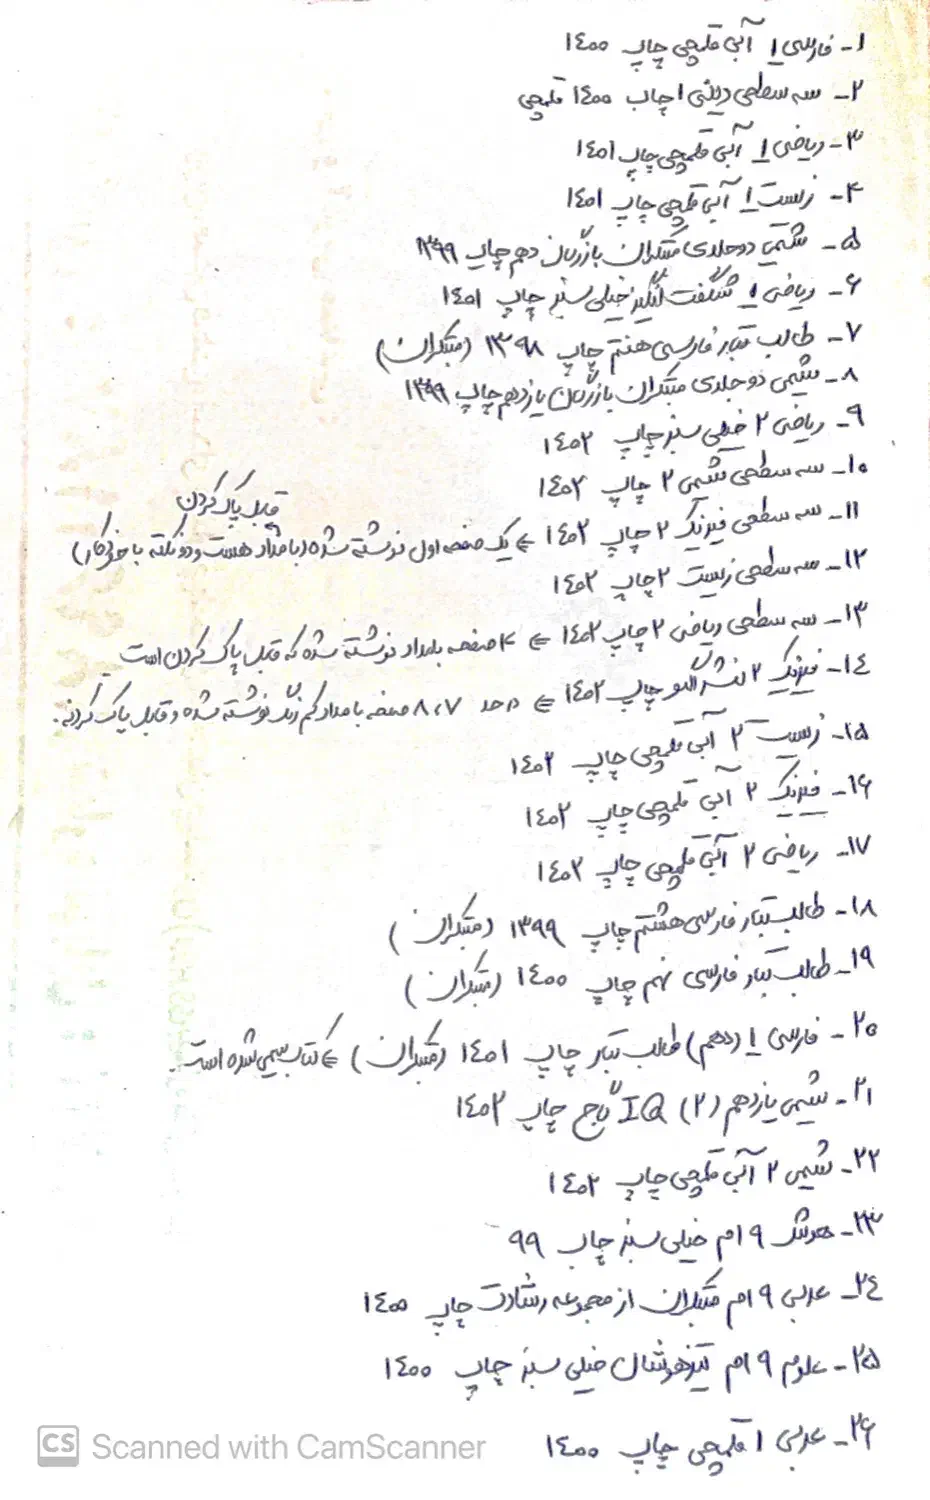 ۱- فارسی ۱ آبی قلمچی چاپ ۱۴۰۰
۲- سه سطحی دینی ۱ چاپ ۱۴۰۰ قلمچی
۳- ریاضی ۱ آبی قلمچی چاپ ۱۴۰۱
۴- زیست ۱ آبی قلمچی چاپ ۱۴۰۱
۵- شیمی دوجلدی مبتکران بازرگان دهم چاپ ۱۳۹۹
۶- ریاضی ۱ شگفت انگیز خیلی سبز چاپ ۱۴۰۱
۷- طالب تبار فارسی هفتم چاپ ۱۳۹۸ (مبتکران)
۸- شیمی دوجلدی مبتکران بازرگان یازدهم چاپ ۱۳۹۹
۹- ریاضی ۲ خیلی سبز چاپ ۱۴۰۲
۱۰- سه سطحی شیمی ۲ چاپ ۱۴۰۲
قابل پاک کردن
۱۱- سه سطحی فیزیک ۲ چاپ ۱۴۰۲ ⇐ یک صفحه اول نوشته شده (با مداد هست و دو نکته با خودکار)
۱۲- سه سطحی زیست ۲ چاپ ۱۴۰۲
۱۳- سه سطحی ریاضی ۲ چاپ ۱۴۰۲ ⇐ ۴ صفحه بامداد نوشته شده که قابل پاک کردن است
۱۴- فیزیک ۲ نشر الگو چاپ ۱۴۰۲ ⇐ در حد ۷، ۸ صفحه با مداد کم رنگ نوشته شده و قابل پاک کردنه.
۱۵- زیست ۲ آبی قلمچی چاپ ۱۴۰۲
۱۶- فیزیک ۲ آبی قلمچی چاپ ۱۴۰۲
۱۷- ریاضی ۲ آبی قلمچی چاپ ۱۴۰۲
۱۸- طالب تبار فارسی هشتم چاپ ۱۳۹۹ (مبتکران)
۱۹- طالب تبار فارسی نهم چاپ ۱۴۰۰ (مبتکران)
۲۰- فارسی ۱ (دهم) طالب تبار چاپ ۱۴۰۱ (مبتکران) ⇐ کتاب سیمی شده است.
۲۱- شیمی یازدهم (۲) IQ گاج چاپ ۱۴۰۲
۲۲- شیمی ۲ آبی قلمچی چاپ ۱۴۰۲
۲۳- هوش ۹ ام خیلی سبز چاپ ۹۹
۲۴- عربی ۹ ام مبتکران از مجموعه رشادت چاپ ۱۴۰۰
۲۵- علوم ۹ ام تیزهوشان خیلی سبز چاپ ۱۴۰۰
۲۶- عربی ۱ قلمچی چاپ ۱۴۰۰
CS Scanned with CamScanner